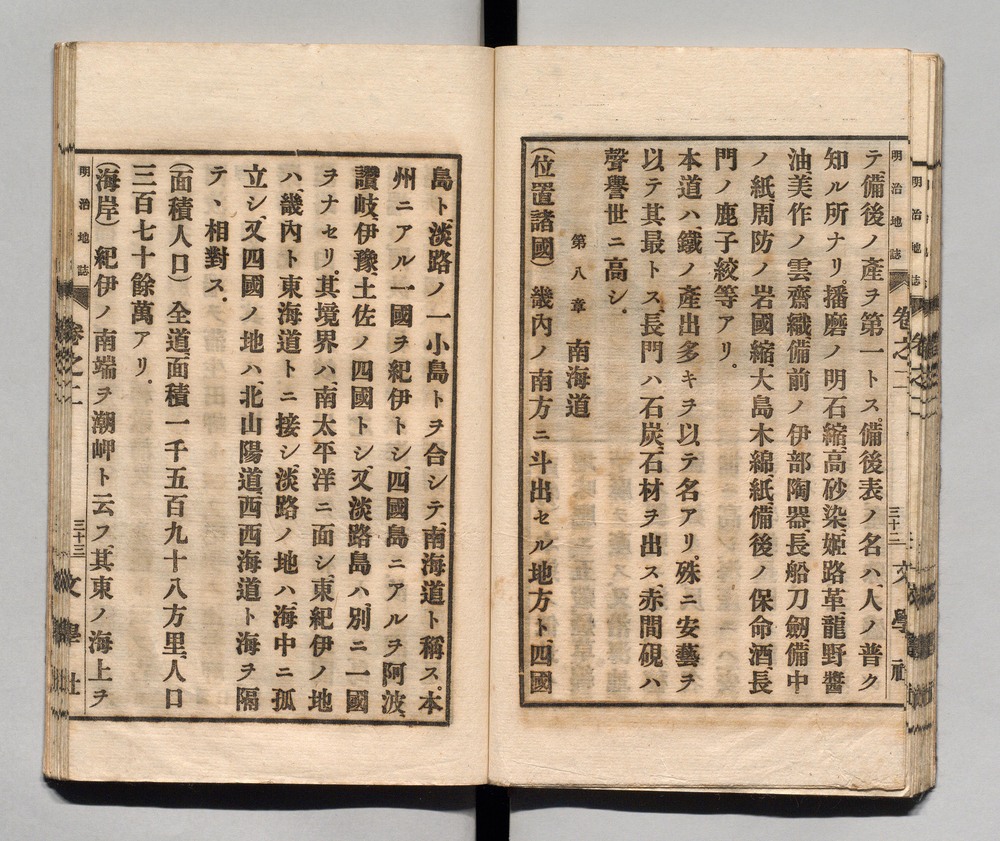 明治地誌 卷之二 三十二 文學社
テ、備後ノ產ヲ第一トス。備後表ノ名ハ、人ノ普ク
知ル所ナリ。播磨ノ明石縮、高砂染、姬路革、龍野醬
油、美作ノ雲齋織、備前ノ伊部陶器、長船刀劒、備中
ノ紙、周防ノ岩國縮、大島木綿、紙、備後ノ保命酒、長
門ノ鹿子絞等アリ。
本道ハ、鐵ノ產出多キヲ以テ名アリ。殊ニ安藝ヲ
以テ其最トス、長門ハ石炭、石材ヲ出ス、赤間硯ハ
聲譽世ニ高シ。
第八章 南海道
(位置諸國) 畿內ノ南方ニ斗出セル地方ト、四國
島ト、淡路ノ一小島トヲ合シテ、南海道ト稱ス。本
州ニアル一國ヲ紀伊トシ、四國島ニアルヲ阿波、
讚岐、伊豫、土佐ノ四國トシ、又淡路島ハ、別ニ一國
ヲナセリ。其境界ハ、南太平洋ニ面シ、東紀伊ノ地
ハ、畿內ト東海道トニ接シ、淡路ノ地ハ、海中ニ孤
立シ、又四國ノ地ハ、北山陽道、西西海道ト海ヲ隔
テヽ相對ス。
(面積人口) 全道、面積一千五百九十八方里、人口
三百七十餘萬アリ.
(海岸) 紀伊ノ南端ヲ潮岬ト云フ、其東ノ海上ヲ
明治地誌 卷之二 三十三 文學社